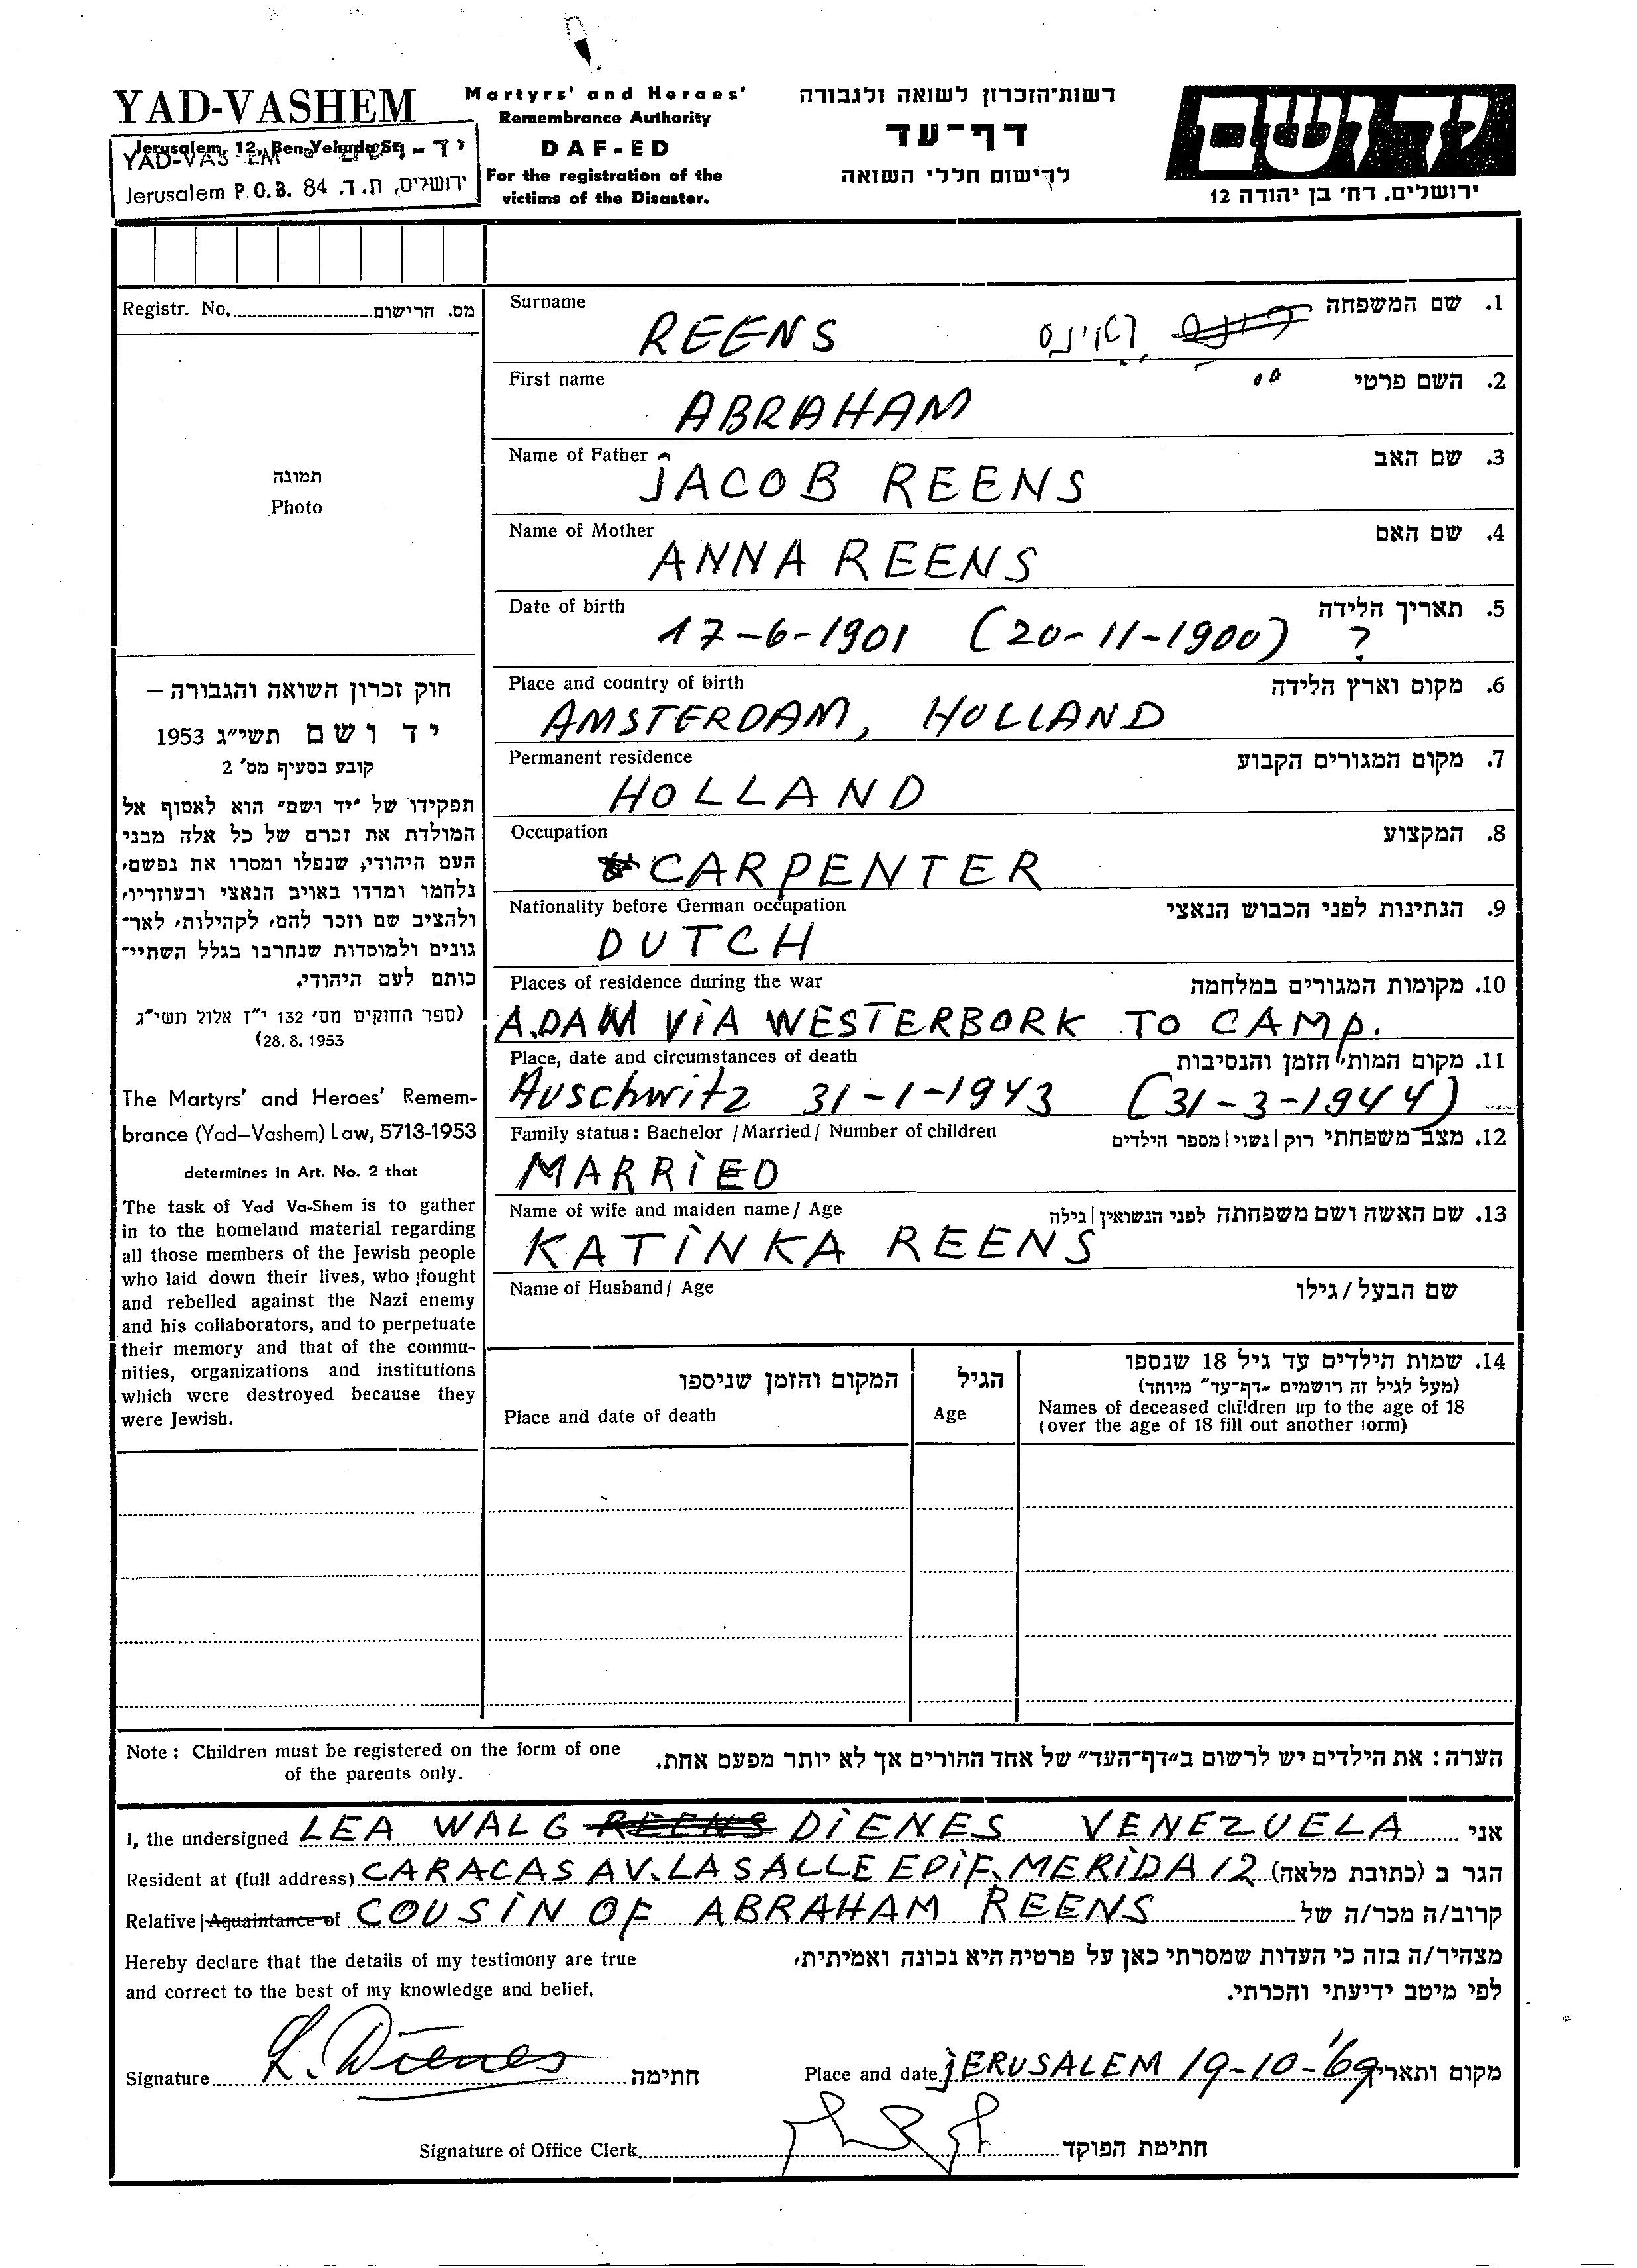 YAD-VASHEM
Martyrs' and Heroes'
Remembrance Authority
DAF-ED
For the registration of the
victims of the Disaster.
Jerusalem, 12, Ben Yehuda St.
YAD-VAS EM
Jerusalem P.O.B. 84 .ירושלים, ת.ד
רשות־הזכרון לשואה ולגבורה
דף־עד
לרישום חללי השואה
יד ושם
ירושלים, רח' בן יהודה 12
Registr. No. מס. הרישום
תמונה
Photo
חוק זכרון השואה והגבורה –
יד ושם תשי״ג 1953
קובע בסעיף מס' 2
תפקידו של "יד ושם" הוא לאסוף אל
המולדת את זכרם של כל אלה מבני
העם היהודי, שנפלו ומסרו את נפשם,
נלחמו ומרדו באויב הנאצי ובעוזריו,
ולהציב שם וזכר להם, לקהילות, לאר־
גונים ולמוסדות שנחרבו בגלל השתיי־
כותם לעם היהודי.
(ספר החוקים מס' 132 י״ז אלול תשי״ג
28. 8. 1953)
The Martyrs' and Heroes' Remem-
brance (Yad–Vashem) Law, 5713-1953
determines in Art. No. 2 that
The task of Yad Va-Shem is to gather
in to the homeland material regarding
all those members of the Jewish people
who laid down their lives, who fought
and rebelled against the Nazi enemy
and his collaborators, and to perpetuate
their memory and that of the commu-
nities, organizations and institutions
which were destroyed because they
were Jewish.
Surname 1. שם המשפחה
REENS ראינס
First name 2. השם פרטי
ABRAHAM
Name of Father 3. שם האב
JACOB REENS
Name of Mother 4. שם האם
ANNA REENS
Date of birth 5. תאריך הלידה
17-6-1901 (20-11-1900) ?
Place and country of birth 6. מקום וארץ הלידה
AMSTERDAM, HOLLAND
Permanent residence 7. מקום המגורים הקבוע
HOLLAND
Occupation 8. המקצוע
CARPENTER
Nationality before German occupation 9. הנתינות לפני הכבוש הנאצי
DUTCH
Places of residence during the war 10. מקומות המגורים במלחמה
A.DAM VIA WESTERBORK TO CAMP.
Place, date and circumstances of death 11. מקום המות, הזמן והנסיבות
Auschwitz 31-1-1943 (31-3-1944)
Family status: Bachelor / Married / Number of children 12. מצב משפחתי רוק | נשוי | מספר הילדים
MARRIED
Name of wife and maiden name / Age 13. שם האשה ושם משפחתה לפני הנשואין | גילה
KATINKA REENS
Name of Husband / Age שם הבעל / גילו
המקום והזמן שניספו
Place and date of death
הגיל
Age
14. שמות הילדים עד גיל 18 שנספו
(מעל לגיל זה רושמים "דף־עד" מיוחד)
Names of deceased children up to the age of 18
(over the age of 18 fill out another form)
Note: Children must be registered on the form of one
of the parents only.
הערה: את הילדים יש לרשום ב״דף־העד״ של אחד ההורים אך לא יותר מפעם אחת.
I, the undersigned LEA WALG REENS DIENES VENEZUELA אני
Resident at (full address) CARACAS AV. LA SALLE EDIF. MERIDA 12 הגר ב (כתובת מלאה)
Relative | Aquaintance of COUSIN OF ABRAHAM REENS קרוב/ה מכר/ה של
Hereby declare that the details of my testimony are true
and correct to the best of my knowledge and belief.
מצהיר/ה בזה כי העדות שמסרתי כאן על פרטיה היא נכונה ואמיתית,
לפי מיטב ידיעתי והכרתי.
Signature L. Dienes חתימה
Place and date JERUSALEM 19-10-'69 מקום ותאריך
Signature of Office Clerk חתימת הפוקד